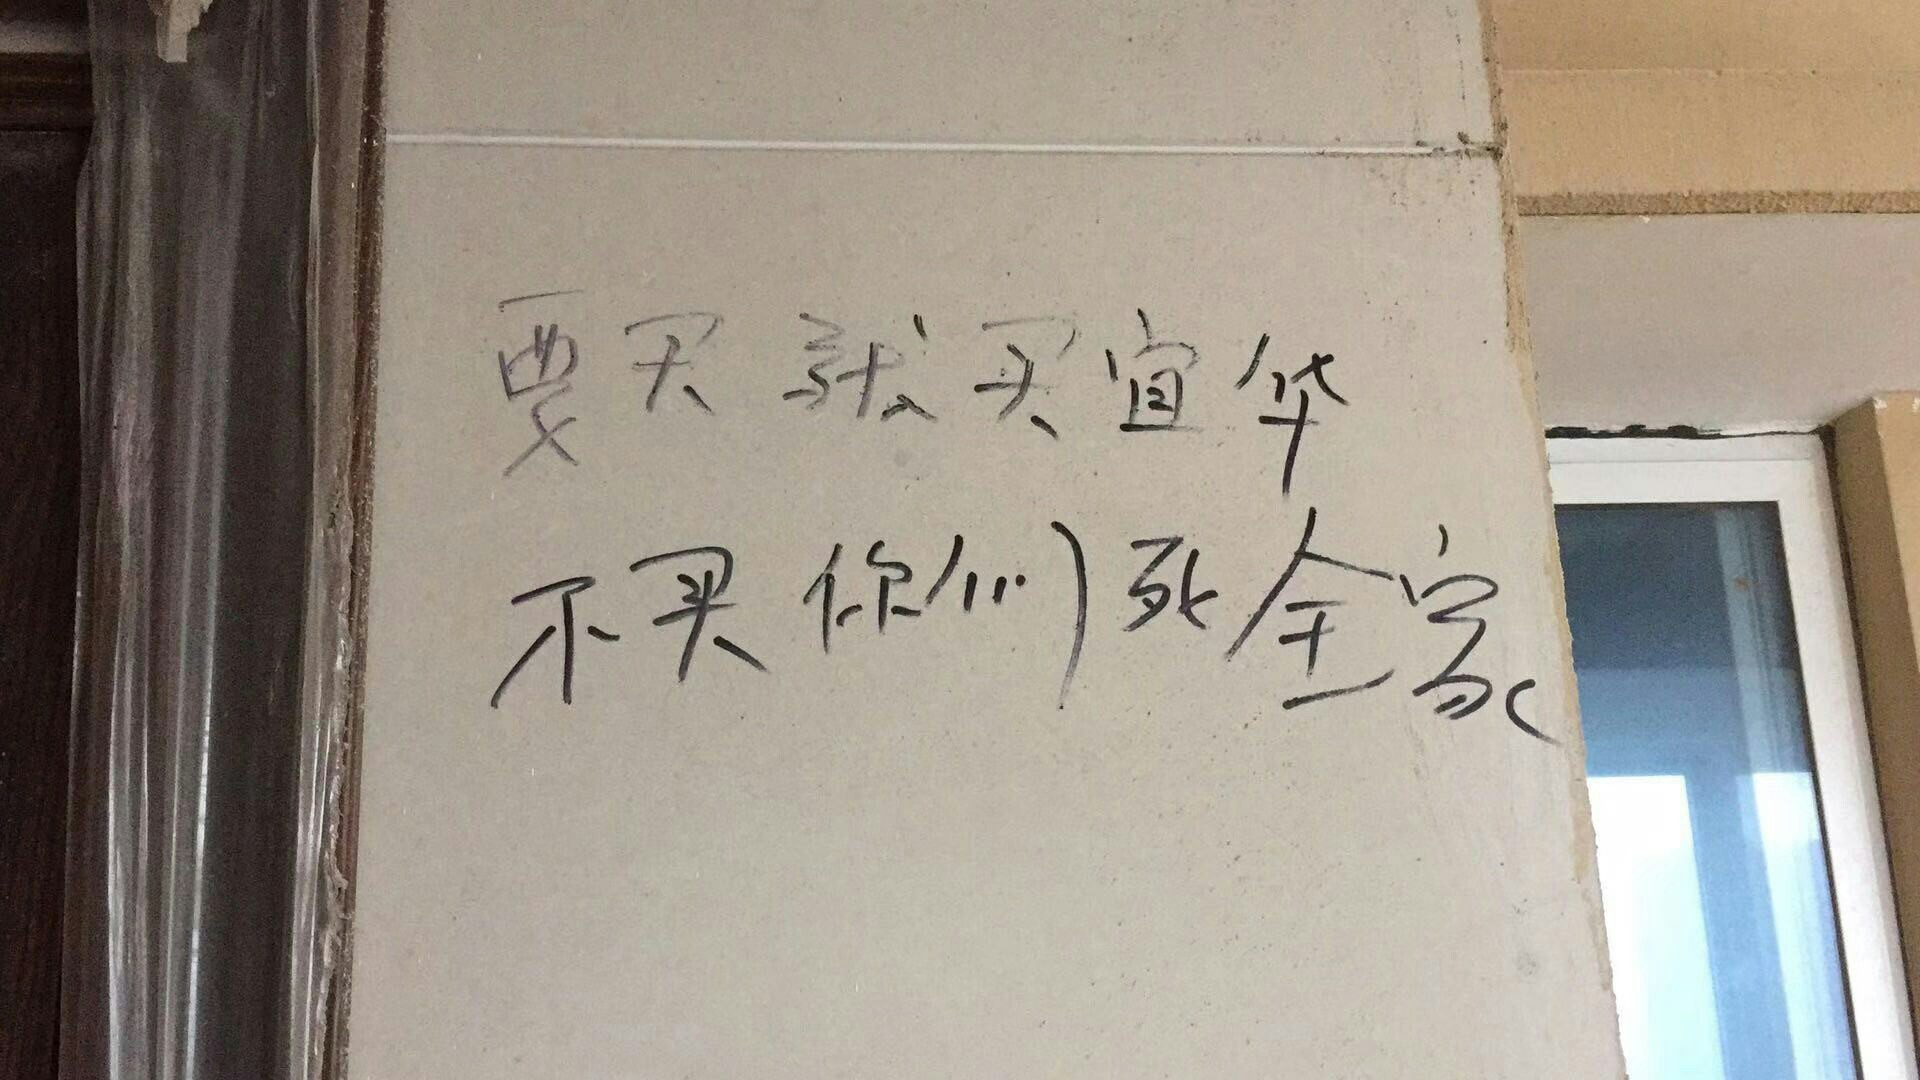 要买就买宜华
不买你们死全家